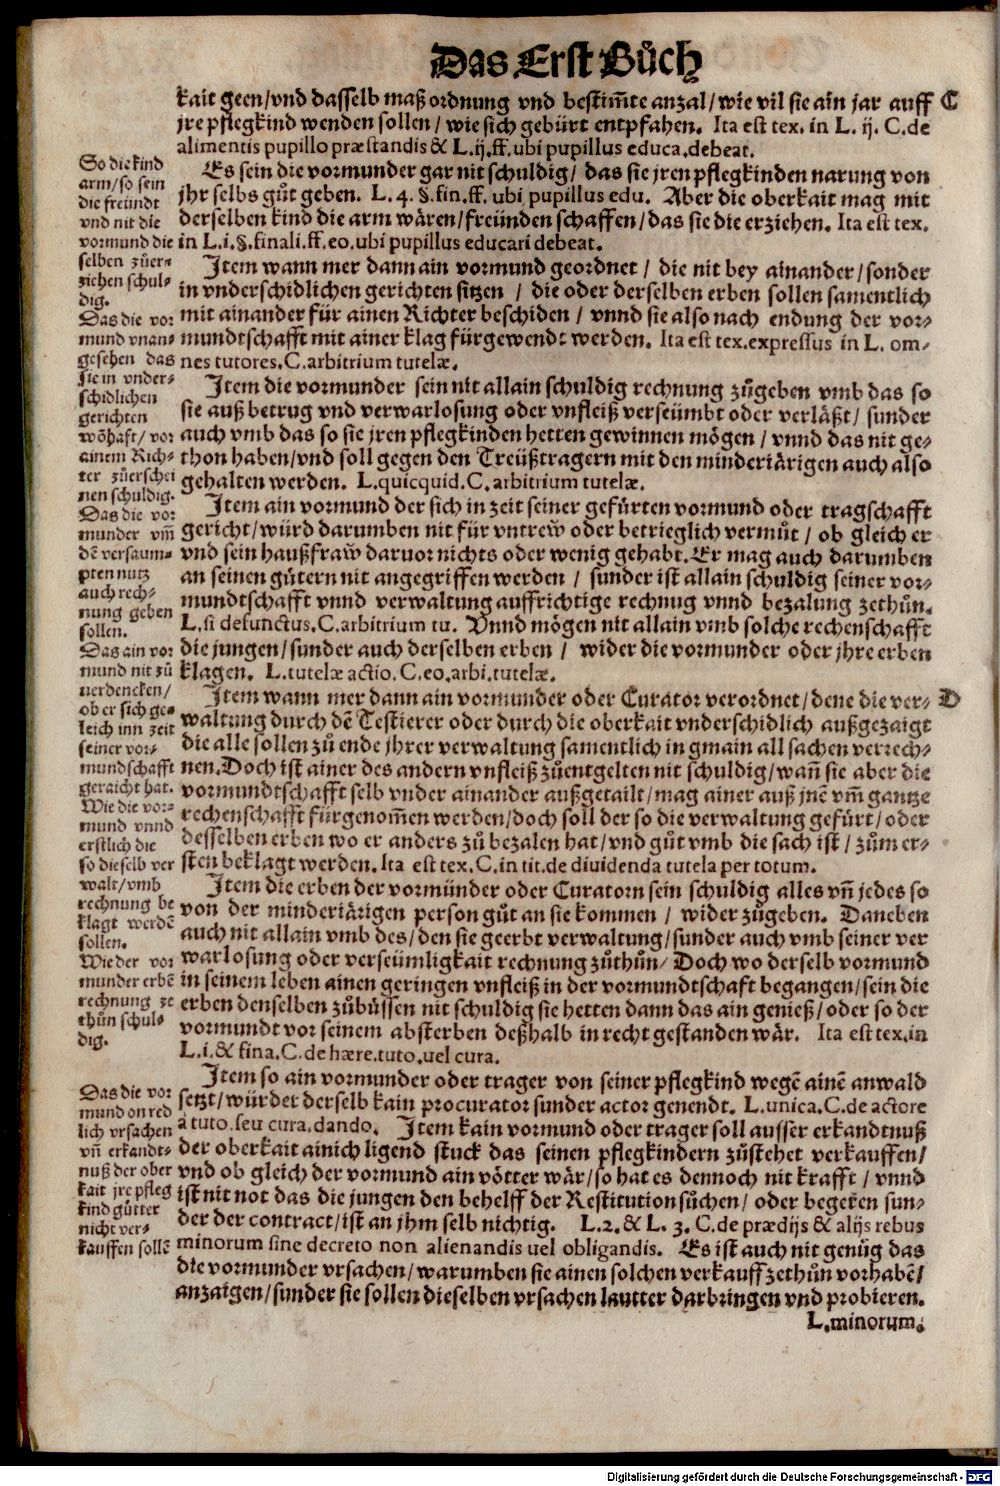 Das Erst Bůch
kait geen/vnd dasselb maß ordnung vnd bestim̃te anzal/wie vil sie ain jar auff C
jre pflegkind wenden sollen/wie sich gebürt entpfahen. Ita est tex. in L. ij. C.de
alimentis pupillo præstandis & L.ij.ff.ubi pupillus educa.debeat.
Es sein die vormunder gar nit schuldig/das sie jren pflegkinden narung von
jhr selbs gůt geben. L. 4. §.fin.ff. ubi pupillus edu. Aber die oberkait mag mit
derselben kind die arm wären/freünden schaffen/das sie die erziehen. Ita est tex.
in L.i.§.finali.ff.eo.ubi pupillus educari debeat.
Item wann mer dann ain vormund geordnet/die nit bey ainander/sonder
in vnderschidlichen gerichten sitzen/die oder derselben erben sollen samentlich
mit ainander für ainen Richter beschiden/vnnd sie also nach endung der vor⸗
mundtschafft mit ainer klag fürgewendt werden. Ita est tex.expressus in L. om⸗
nes tutores.C.arbitrium tutelæ.
Item die vormunder sein nit allain schuldig rechnung zůgeben vmb das so
sie auß betrug vnd verwarlosung oder vnfleiß verseümbt oder verläßt/sunder
auch vmb das so sie jren pflegkinden hetten gewinnen mögen/vnnd das nit ge⸗
thon haben/vnd soll gegen den Treüßtragern mit den minderiärigen auch also
gehalten werden. L.quicquid.C.arbitrium tutelæ.
Item ain vormund der sich in zeit seiner gefürten vormund oder tragschafft
gericht/würd darumben nit für vntrew̃ oder betrieglich vermůt/ob gleich er
vnd sein haußfraw̃ daruor nichts oder wenig gehabt. Er mag auch darumben
an seinen gütern nit angegriffen werden/sunder ist allain schuldig seiner vor⸗
mundtschafft vnnd verwaltung auffrichtige rechnug vnnd bezalung zethůn.
L.si defunctus.C.arbitrium tu. Vnnd mögen nit allain vmb solche rechenschafft
die jungen/sunder auch derselben erben/wider die vormunder oder jhre erben
klagen. L.tutelæ actio.C.eo.arbi.tutelæ.
Item wann mer dann ain vormunder oder Curator verordnet/dene die ver⸗ D
waltung durch dẽ Testierer oder durch die oberkait vnderschidlich außgezaigt
die alle sollen zů ende jhrer verwaltung samentlich in gmain all sachen verrech⸗
nen. Doch ist ainer des andern vnfleiß zůentgelten nit schuldig/wañ sie aber die
vormundtschafft selb vnder ainander außgetailt/mag ainer auß jnẽ vm̃ gantze
rechenschafft fürgenom̃en werden/doch soll der so die verwaltung gefürt/oder
desselben erben wo er anders zů bezalen hat/vnd gůt vmb die sach ist/zům er⸗
sten beklagt werden. Ita est tex.C.in tit.de diuidenda tutela per totum.
Item die erben der vormünder oder Curatorn sein schuldig alles vñ jedes so
von der minderiärigen person gůt an sie kommen/wider zůgeben. Daneben
auch nit allain vmb des/den sie geerbt verwaltung/sunder auch vmb seiner ver
warlosung oder verseümligkait rechnung zůthůn/Doch wo derselb vormund
in seinem leben ainen geringen vnfleiß in der vormundtschaft begangen/sein die
erben denselben zůbüssen nit schuldig sie hetten dann das ain genieß/oder so der
vormundt vor seinem absterben deßhalb in recht gestanden wär. Ita est tex.in
L.i.& fina.C.de hære.tuto.uel cura.
Item so ain vormunder oder trager von seiner pflegkind wegẽ ainẽ anwald
setzt/würder derselb kain procurator sunder actor genendt. L.unica.C.de actore
à tuto.seu cura.dando. Item kain vormund oder trager soll ausser erkandtnuß
der oberkait ainich ligend stuck das seinen pflegkindern zůstehet verkauffen/
vnd ob gleich der vormund ain vötter wär/so hat es dennoch nit krafft/vnnd
ist nit not das die jungen den behelff der Restitution sůchen/oder begeren sun⸗
der der contract/ist an jhm selb nichtig. L.2. & L. 3. C.de prædijs & alijs rebus
minorum sine decreto non alienandis uel obligandis. Es ist auch nit genůg das
die vormunder vrsachen/warumben sie ainen solchen verkauff zethůn vorhabẽ/
anzaigen/sunder sie sollen dieselben vrsachen lautter darbringen vnd probieren.
L.minorum.
So die kind
arm/so sein
die freündt
vnd nit die
vormund die
selben zůer⸗
ziehen schul⸗
dig.
Das die vor
mund vnan⸗
gesehen das
sie in vnder⸗
schidlichen
gerichten
wõhaft/vor
ainem Rich⸗
ter zůerschei
nen schuldig.
Das die vor
munder vm̃
dẽ versaum⸗
pten nutz
auch rech⸗
nung geben
sollen.
Das ain vor
mund nit zů
uerdencken/
ob er sich ge⸗
leich inn zeit
seiner vor⸗
mundschafft
geraicht hat.
Wie die vor⸗
mund vnnd
erstlich die
so dieselb ver
walt/vmb
rechnung be
klagt werdẽ
sollen.
Wie der vor
munder erbẽ
rechnung ze
thůn schul⸗
dig.
Das die vor
mund on red
lich vrsachen
vñ erkandt⸗
nuß der ober
kait jre pfleg
kind gütter
nicht ver⸗
kauffen sollẽ
Digitalisierung gefördert durch die Deutsche Forschungsgemeinschaft - DFG